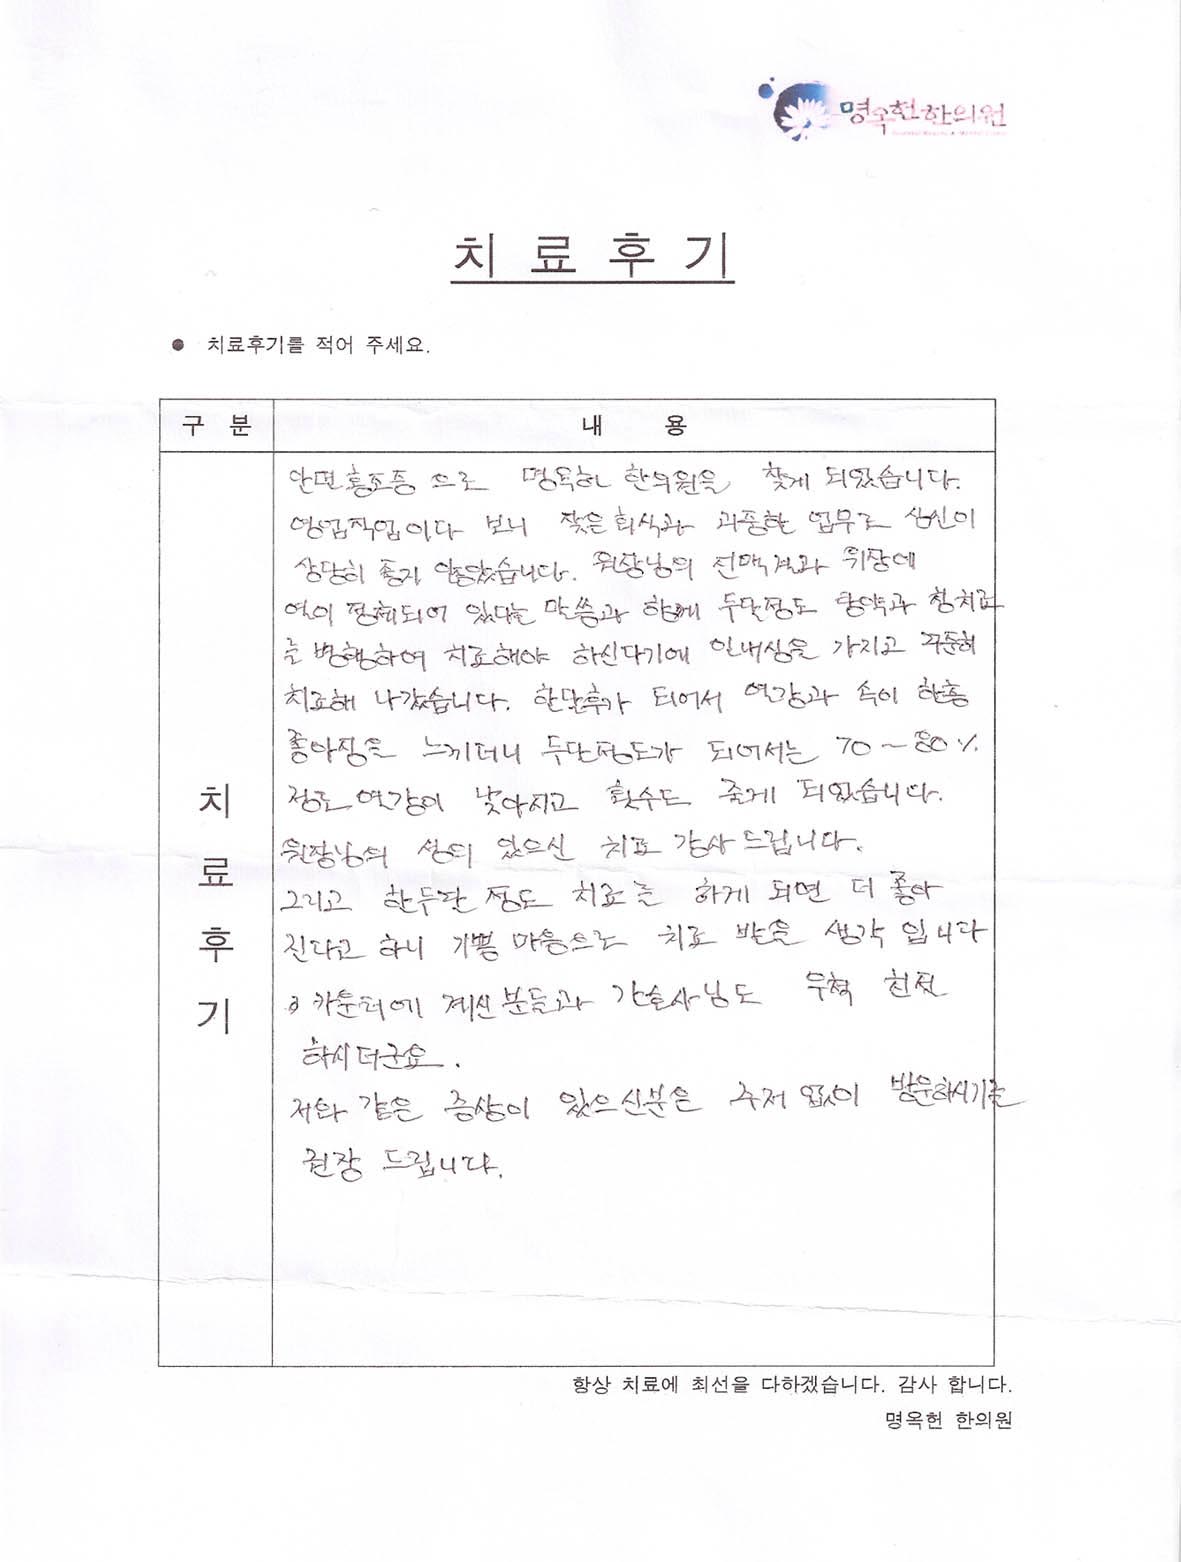 명옥헌한의원
치 료 후 기
● 치료후기를 적어 주세요.
구 분
내 용
치
료
후
기
안면홍조증 으로 명옥헌 한의원을 찾게 되었습니다.
영업직업이다 보니 잦은 회식과 과중한 업무로 심신이
상당히 좋지 않았습니다. 원장님의 진맥결과 위장에
열이 정체되어 있다는 말씀과 함께 두달정도 탕약과 침치료
를 병행하여 치료해야 하신다기에 인내심을 가지고 꾸준히
치료해 나갔습니다. 한달후가 되어서 열감과 속이 한층
좋아짐을 느끼더니 두달정도가 되어서는 70~80%
정도 열감이 낮아지고 횟수도 줄게 되었습니다.
원장님의 성의 있으신 치료 감사드립니다.
그리고 한두달 정도 치료를 하게 되면 더 좋아
진다고 하니 기쁜 마음으로 치료 받을 생각 입니다
카운터에 계신분들과 간호사님도 무척 친절
하시더군요.
저와 같은 증상이 있으신분은 주저 없이 방문하시기를
권장 드립니다.
항상 치료에 최선을 다하겠습니다. 감사 합니다.
명옥헌 한의원